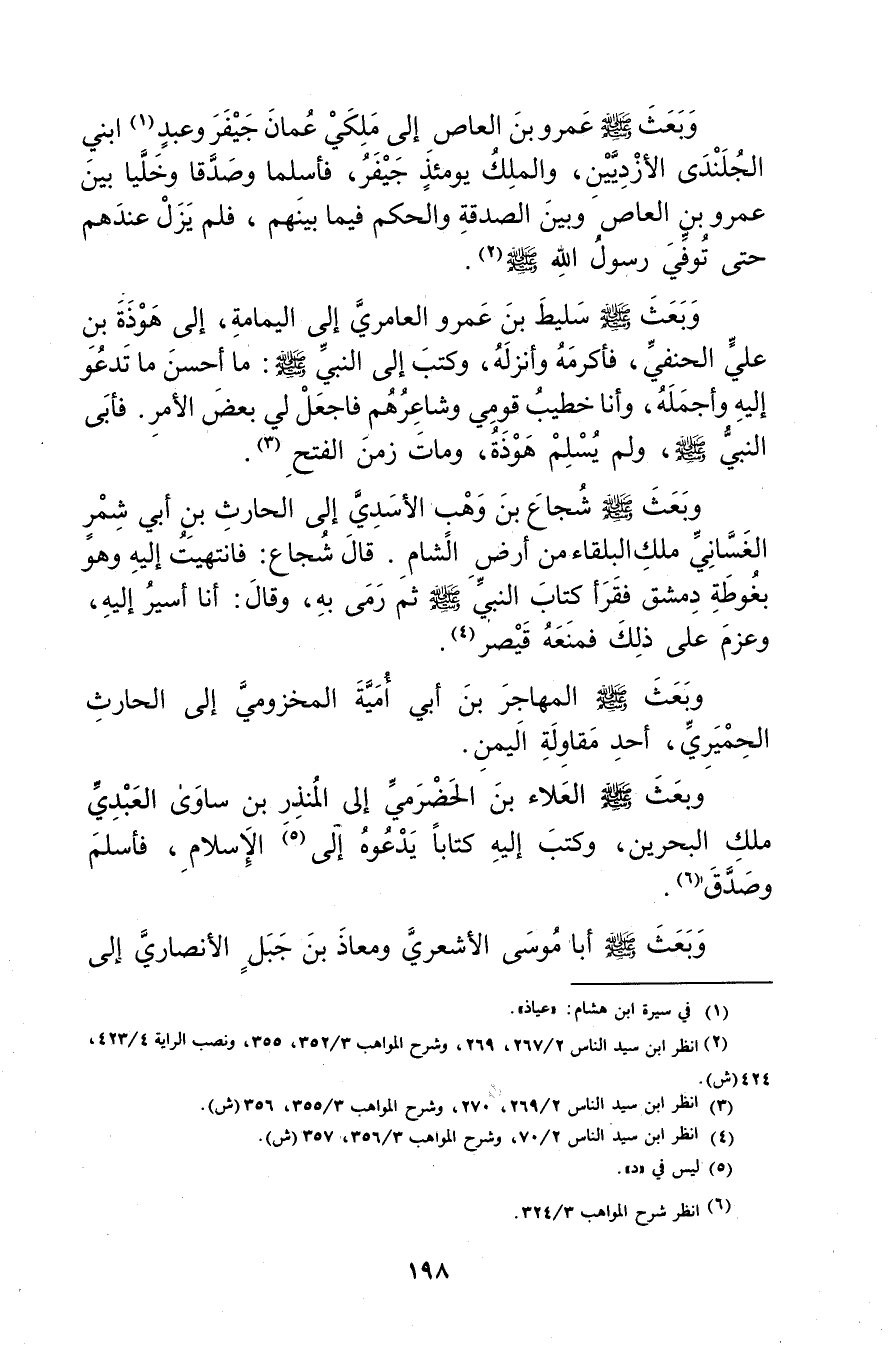 وَبَعَثَ ﷺ عَمرو بنَ العاص إلى مَلِكَيْ عُمانَ جَيْفَرَ وعبدٍ(١) ابني
الجُلَنْدَى الأزْدِيَّيْنِ، والملِكُ يومئذٍ جَيْفَرُ، فأسلما وصَدَّقا وخَلَّيا بينَ
عمرو بنِ العاص وبينَ الصدقةِ والحكم فيما بينَهم ، فلم يَزَلْ عندَهم
حتى تُوفِّيَ رسولُ اللهِ ﷺ(٢).
وَبَعَثَ ﷺ سَليطَ بنَ عَمرو العامريَّ إلى اليمامةِ، إلى هَوْذَةَ بن
عليٍّ الحنفيِّ، فأكرمَهُ وأنزلَهُ، وكتبَ إلى النبيِّ ﷺ: ما أحسنَ ما تَدعُوَ
إليهِ وأجمَلَهُ، وأنا خطيبُ قومِي وشاعِرُهُم فاجعَلْ لي بعضَ الأمرِ. فأبَى
النبيُّ ﷺ، ولم يُسْلِمْ هَوْذَةُ، وماتَ زمنَ الفتحِ(٣).
وبَعَثَ ﷺ شُجاعَ بنَ وَهْبٍ الأسَدِيَّ إلى الحارثِ بنِ أبي شِمْرٍ
الغَسَّانِيِّ ملكِ البلقاء من أرضِ الشامِ . قالَ شُجاع: فانتهيتُ إليهِ وهو
بغُوطَةِ دِمشق فقَرَأ كتابَ النبيِّ ﷺ ثم رَمَى بهِ، وقالَ: أنا أسيرُ إليهِ،
وعزمَ على ذلِكَ فمنَعَهُ قَيْصر(٤).
وبَعَثَ ﷺ المهاجرَ بنَ أبي أُمَيَّةَ المخزوميَّ إلى الحارثِ
الحِمْيَرِيِّ، أحدِ مَقاوِلَةِ اليمنِ.
وبعَثَ ﷺ العَلاء بنَ الحَضْرَميِّ إلى المُنذِرِ بن ساوَىٰ العَبْدِيِّ
ملكِ البحرين، وكتبَ إليهِ كتاباً يَدْعُوهُ إلى(٥) الإسلامِ، فأسلمَ
وصَدَّقَ(٦).
وَبَعَثَ ﷺ أبا مُوسَى الأشعريَّ ومعاذَ بنَ جَبَلٍ الأنصاريَّ إلى
(١) في سيرة ابن هشام: «عياذ».
(٢) انظر ابن سيد الناس ٢٦٧/٢، ٢٦٩، وشرح المواهب ٣٥٢/٣، ٣٥٥، ونصب الراية ٤٢٣/٤،
٤٢٤ (ش).
(٣) انظر ابن سيد الناس ٢٦٩/٢، ٢٧٠، وشرح المواهب ٣٥٥/٣، ٣٥٦ (ش).
(٤) انظر ابن سيد الناس ٧٠/٢، وشرح المواهب ٣٥٦/٣، ٣٥٧ (ش).
(٥) ليس في «د».
(٦) انظر شرح المواهب ٣٢٤/٣.
١٩٨